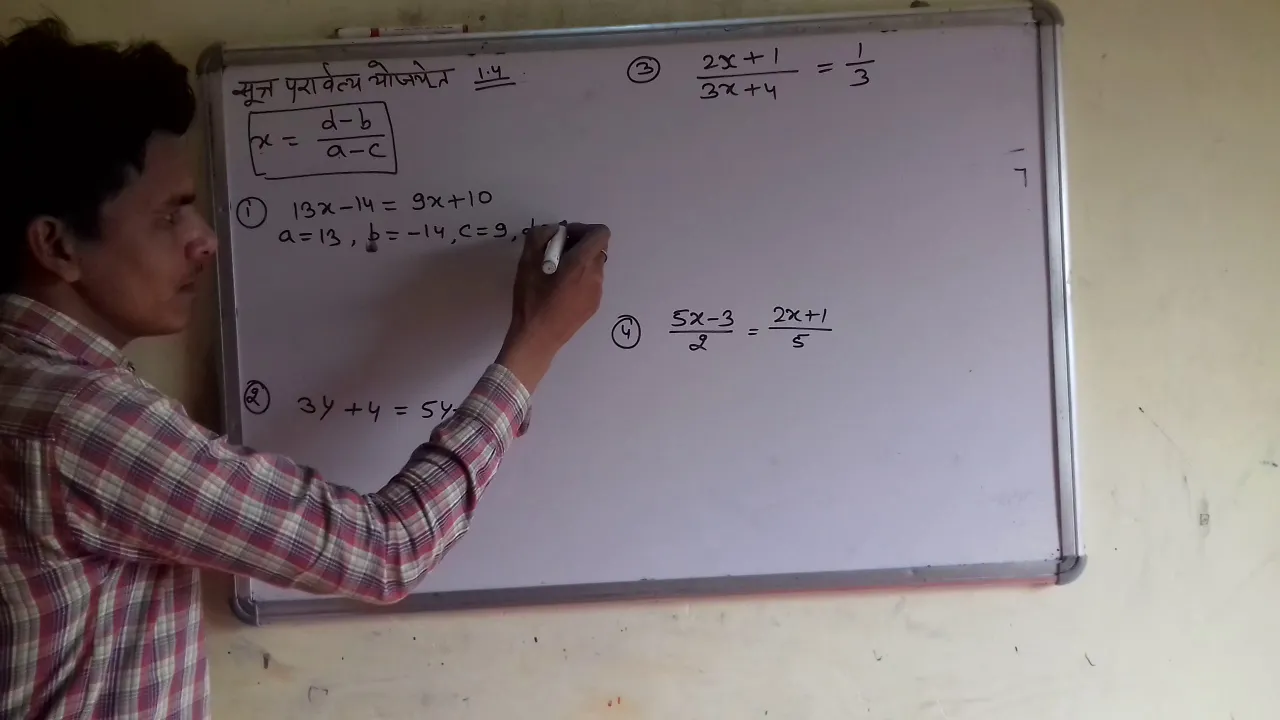 सूत्र परावर्त्य योजयेत 1.4
x = d-b / a-c
① 13x-14 = 9x+10
a=13, b=-14, c=9, d=
② 3y+4 = 5y
③ 2x+1 / 3x+4 = 1/3
④ 5x-3 / 2 = 2x+1 / 5